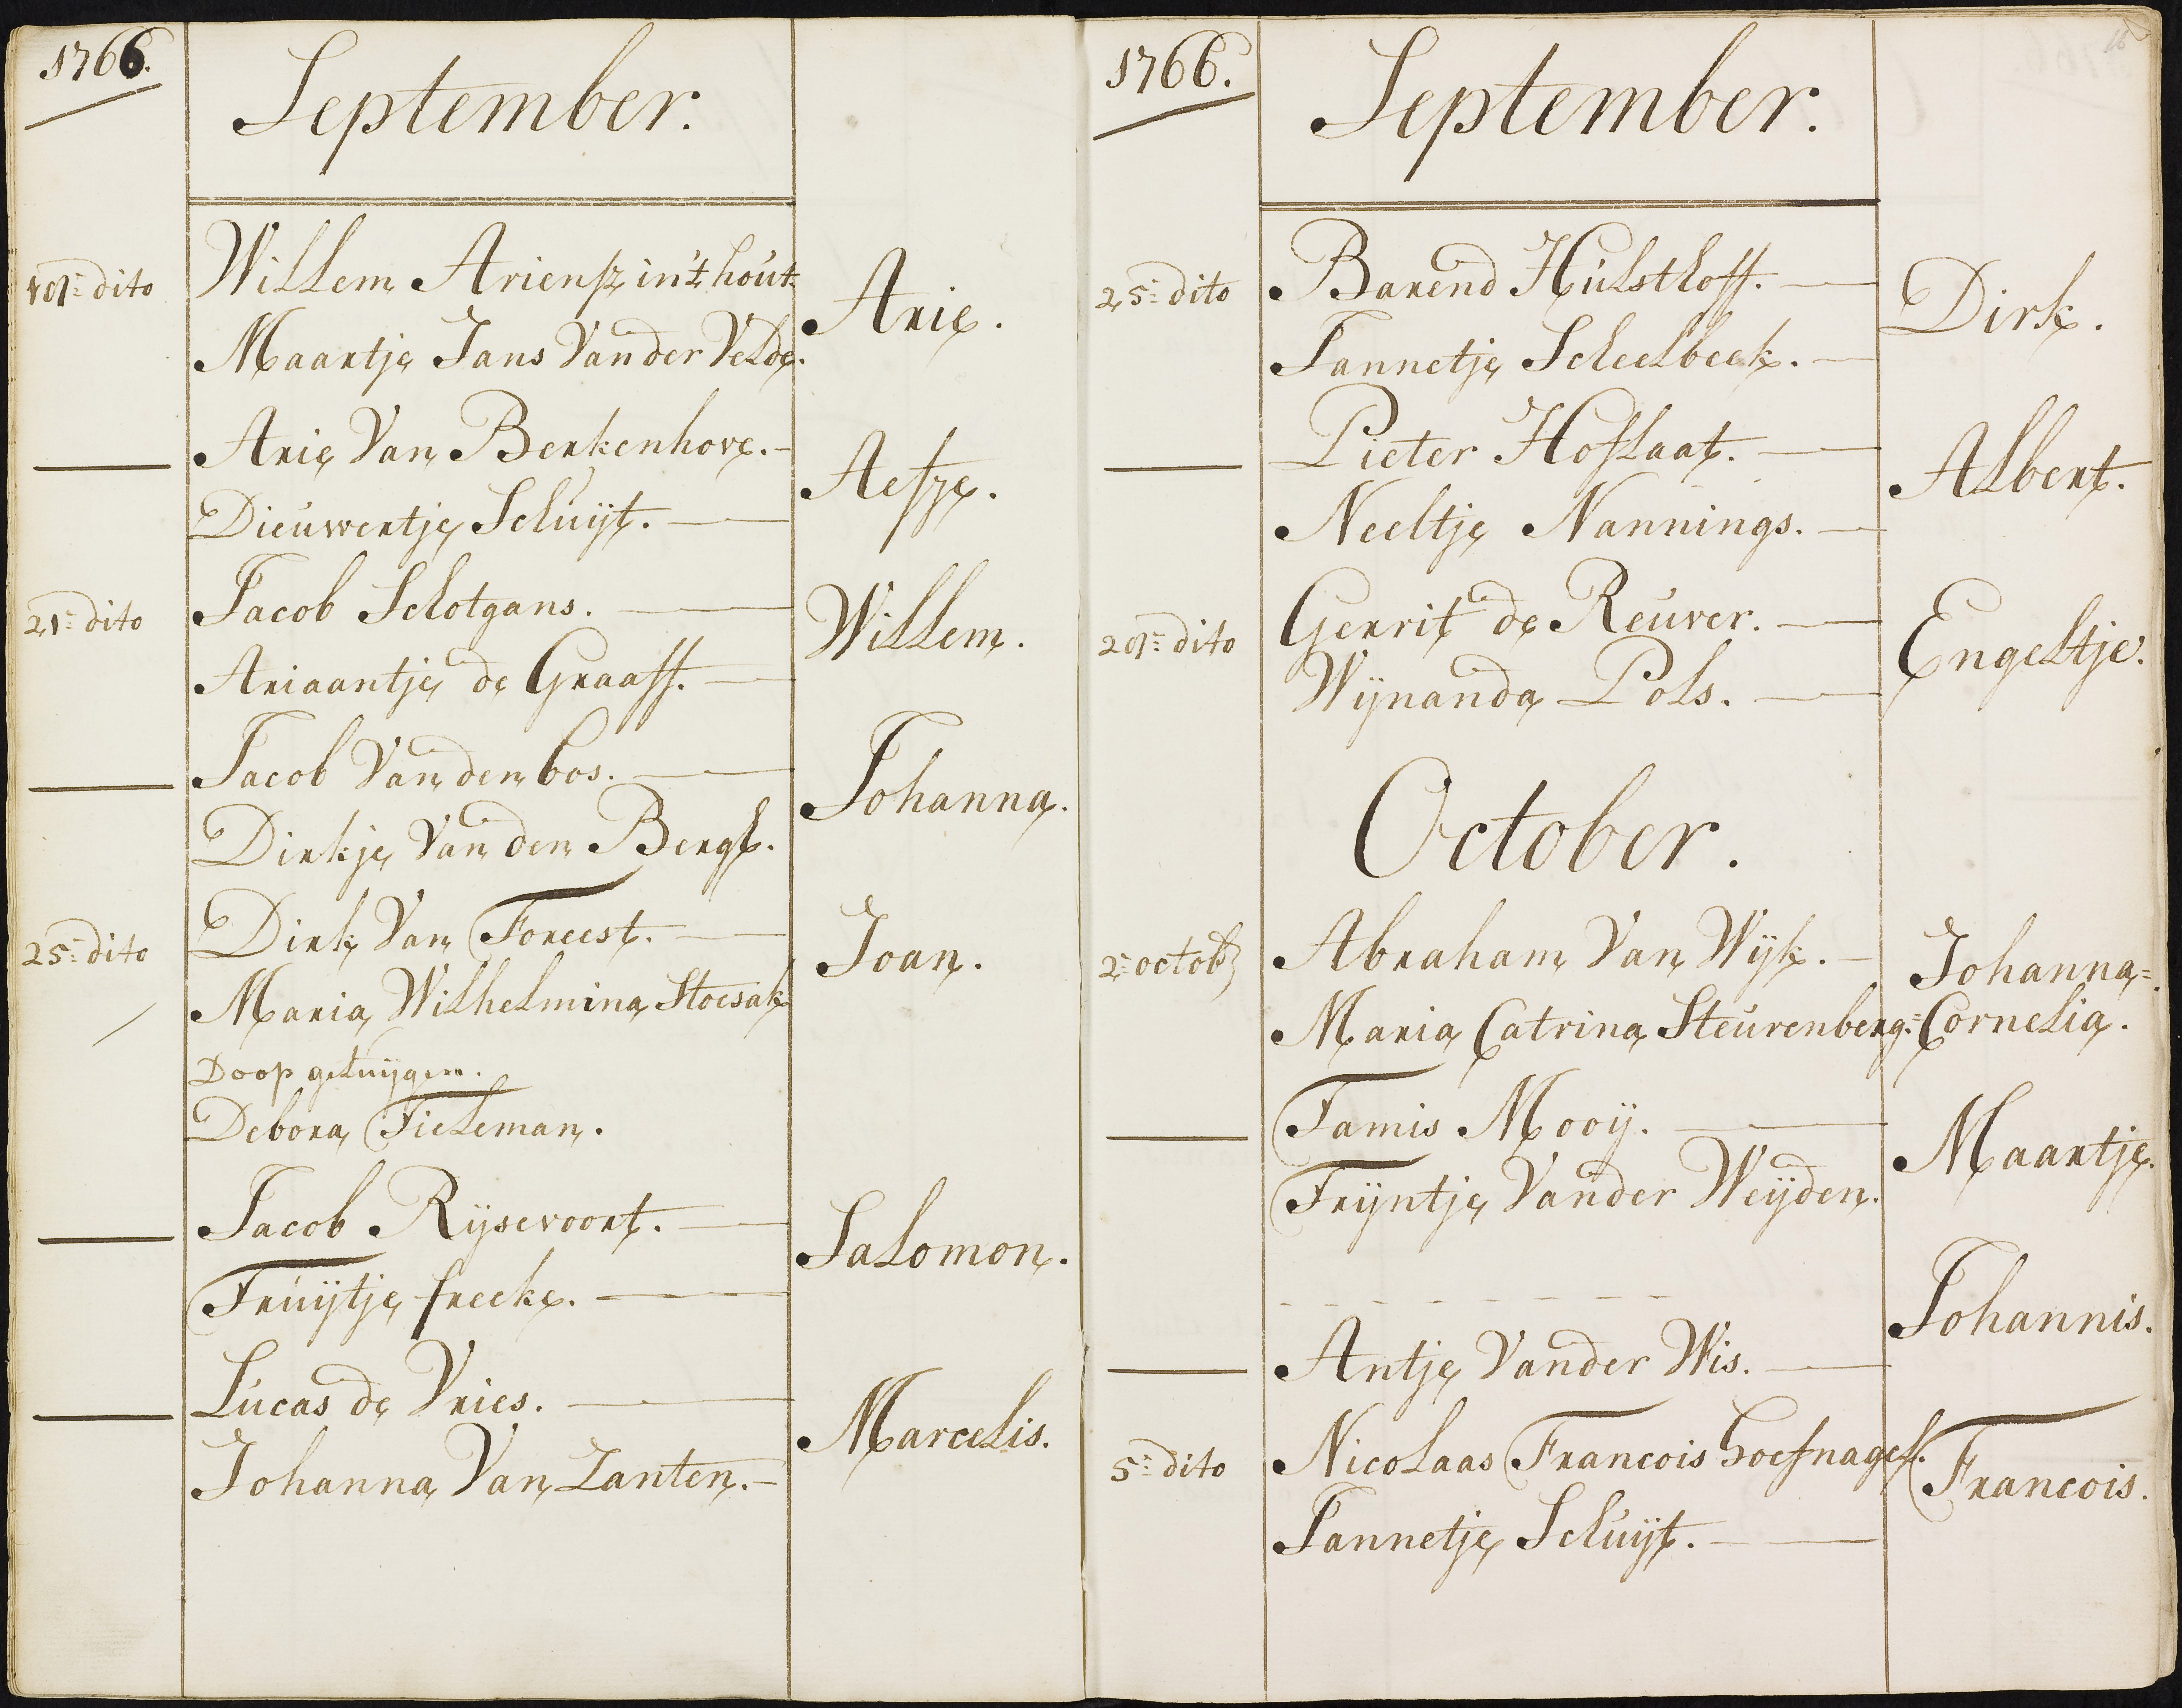 1766.
September.
Willem Ariensz in't hout
18=dito
Arie.
Maartje Jans Vander Velde.
Arie Van Berkenhove.
Aefje.
Dieuwertje Schuijt.
Jacob Schotgans.
21=dito
Willem.
Ariaantje de Graaff.
Jacob Van den bos.
Johanna.
Dirkje Van den Bergh.
Dirk Van Foreest.
25=dito
Joan.
Maria Wilhelmina Stoesak
Doop getuijgen.
Debora Tieleman.
Jacob Rijsevoort.
Salomon.
Truijtje freeke.
Lucas de Vries.
Marcelis.
Johanna Van Zanten.
1766.
16
September.
Barend Hulsthoff.
25=dito
Dirk.
Jannetje Scheelbeek.
Pieter Hoflaat.
Albert.
Neeltje Nannings.
Gerrit de Reuver.
28=dito
Engeltje.
Wijnanda Pols.
October.
2=octob
Abraham Van Wijk.
Johanna=
Maria Catrina Steurenberg.=
Cornelia.
Tamis Mooij.
Maartje.
Trijntje Vander Weijden.
Johannis.
Antje Vander Wis.
5=dito
Nicolaas Francois hoefnagel.
Francois.
Jannetje Schuijt.